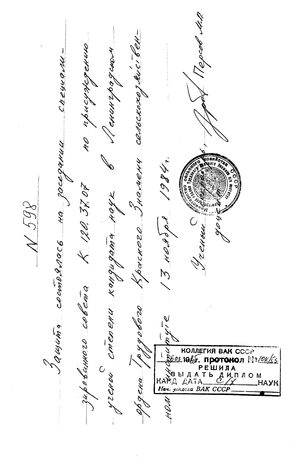 N 598
Защита состоялась на заседании специали-
зированного совета К 120.37.07 по присуждению
ученой степени кандидата наук в Ленинградском
ордена Трудового Красного Знамени сельскохозяйствен-
ном институте 13 ноября 1984г.
Ученый
КОЛЛЕГИЯ ВАК СССР
протокол
РЕШИЛА
ВЫДАТЬ ДИПЛОМ
КАНД ДАТА с/х НАУК
Нач. отдела ВАК СССР